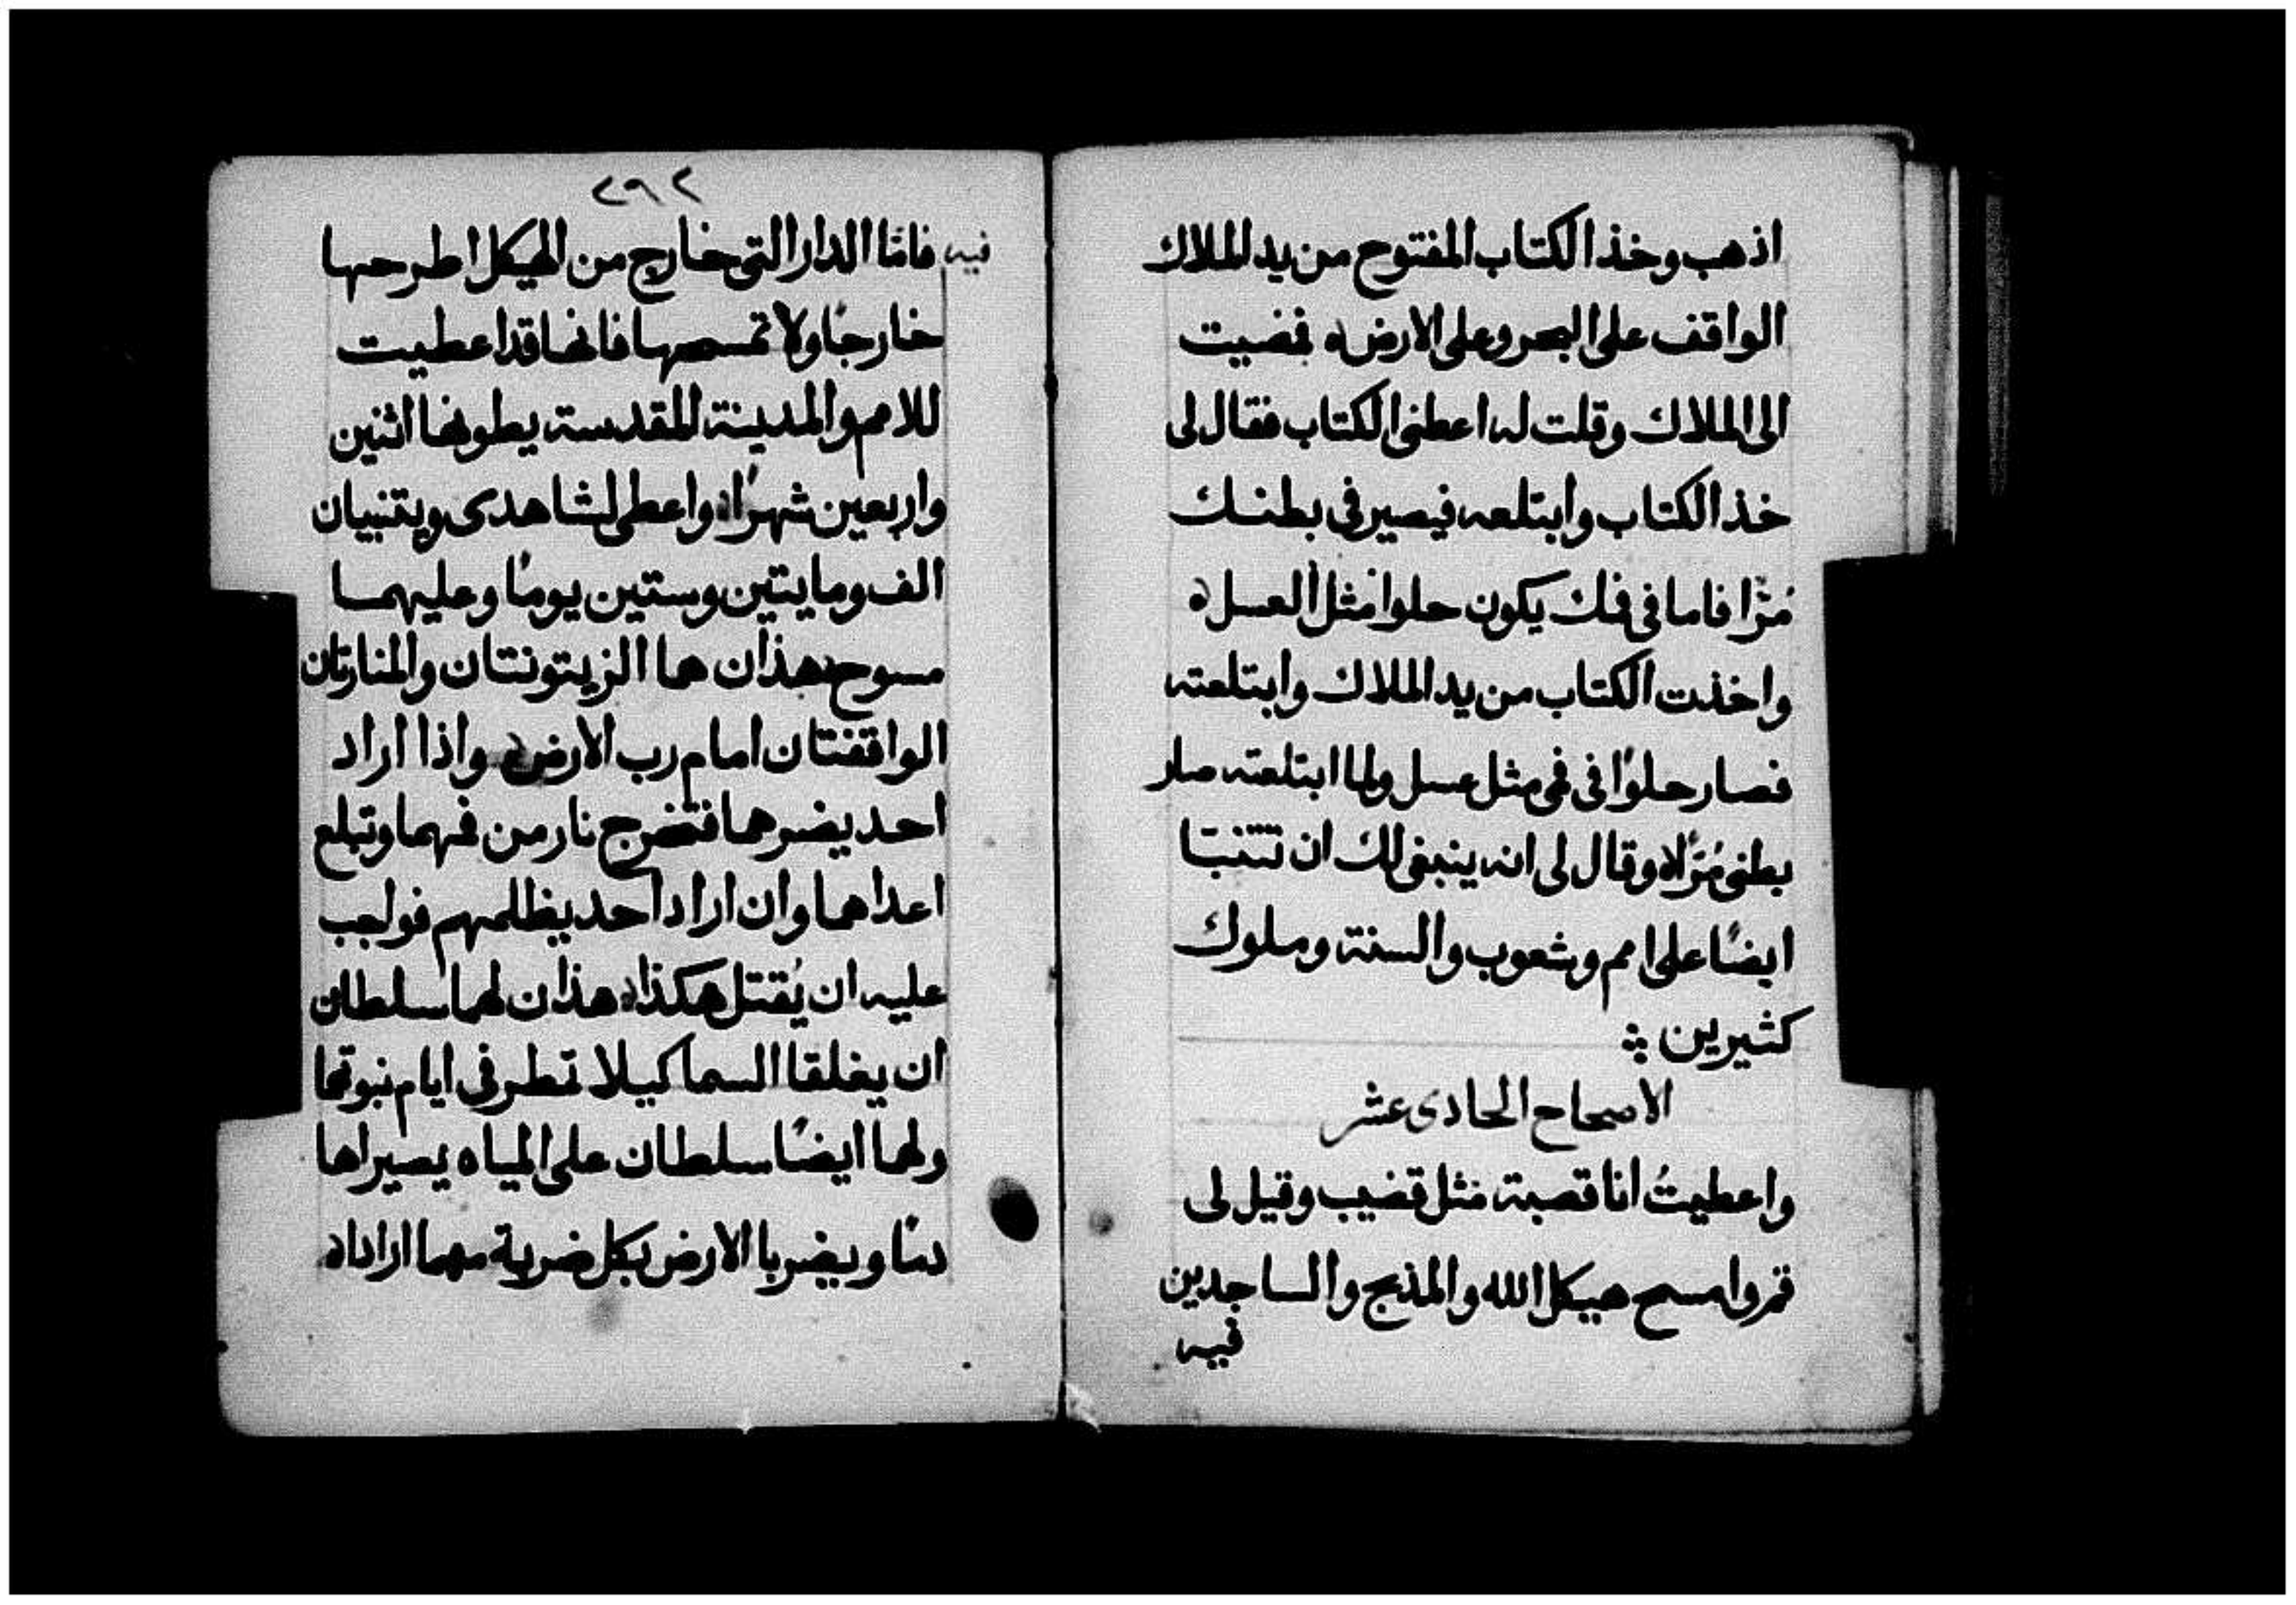 اذهب وخذ الكتاب المفتوح من يد الملاك
الواقف على البحر وعلى الارض ه فمضيت
الى الملاك وقلت له اعطنى الكتاب فقال لى
خذ الكتاب وابتلعه فيصير فى بطنك
مُرًّا فاما فى فمك يكون حلوا مثل العسل ه
واخذت الكتاب من يد الملاك وابتلعته
فصار حلوًا فى فمى مثل عسل ولما ابتلعته صار
بطنى مُرًّا ه وقال لى انه ينبغى لك ان تتنبا
ايضًا على امم وشعوب والسنة وملوك
كثيرين
الاصحاح الحادى عشر
واعطيتُ انا قصبة مثل قضيب وقيل لى
قم وامسح هيكل الله والمذبح والساجدين
فيه
٢٩٢
فيه فامّا الدار التى خارج من الهيكل اطرحها
خارجًا ولا تمسحها فانها قد اعطيت
للامم والمدينة المقدسة يطونها اثنين
واربعين شهرًا ه واعطى لشاهدى ويتنبيان
الف ومايتين وستين يومًا وعليهما
مسوح ه هذان هما الزيتونتان والمنارتان
الواقفتان امام رب الارض ه واذا اراد
احد يضرهما فتخرج نار من فمهما وتبلع
اعداهما وان اراد احد يظلمهم فواجب
عليه ان يُقتل هكذا ه هذان لهما سلطان
ان يغلقا السما كيلا تمطر فى ايام نبوتهما
ولهما ايضًا سلطان على المياه يصيراها
دمًا ويضربا الارض بكل ضربة مهما ارادا ه